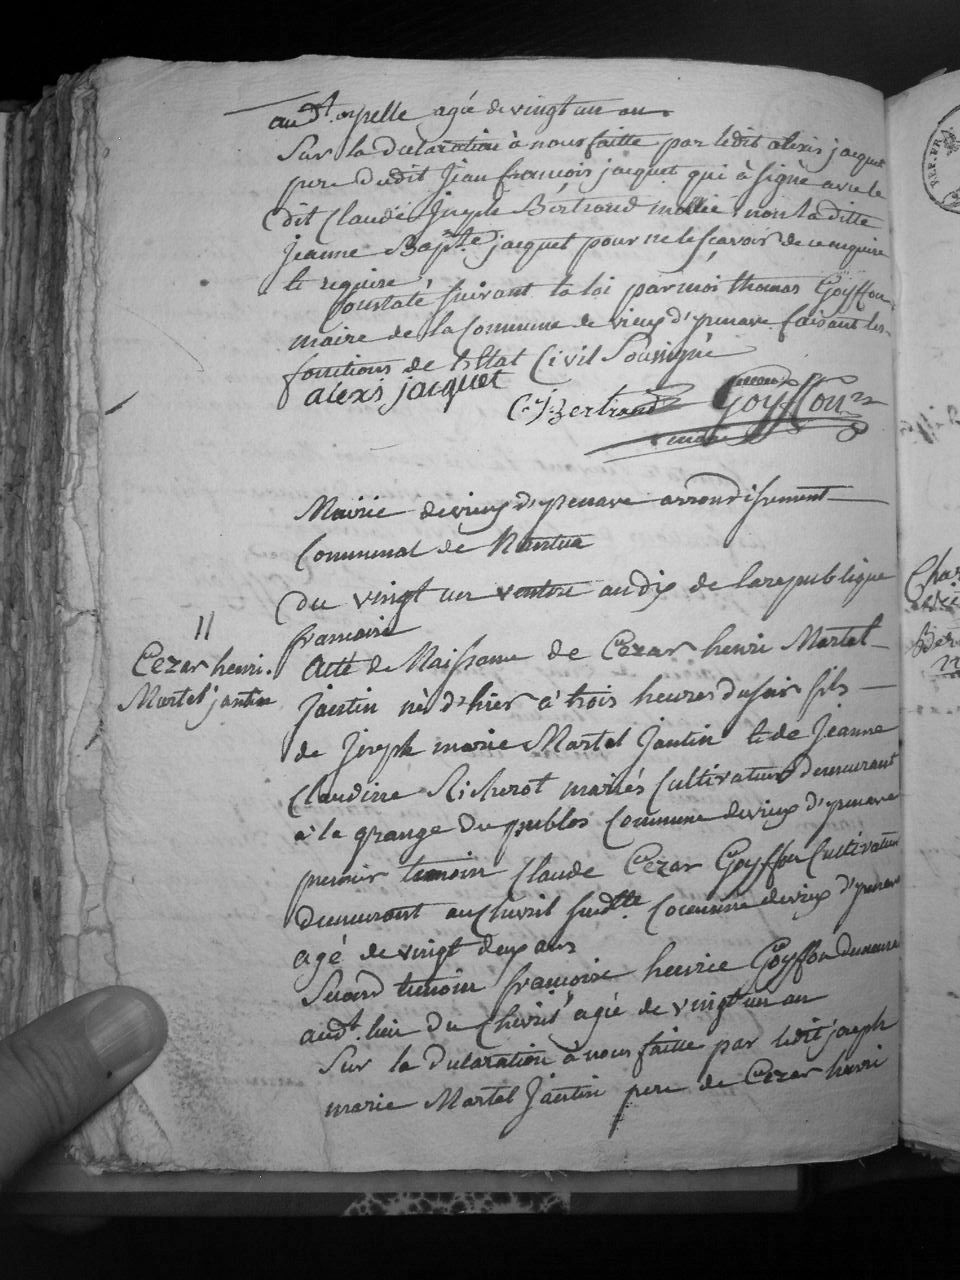 audt. apelle agée de vingt un an
Sur la declaration à nous faitte par ledit alexis jacquet
pere dudit Jean francois jacquet qui à signé avec le
dit Claude Joseph Bertrand mollie non la ditte
Jeanne Bapte. jacquet pour ne le sçavoir de ce enquise
et requise
Constaté suivant la loi par moi thomas Goyffon
maire de la Commune de vieux d'yzenave faisant les
fonctions de Etat Civil Soussigné
alexis jacquet
C. J. Bertrand Goyffon
maire
Mairie de vieux d'yzenave arrondissement
Communal de Nantua
Du vingt un ventose an dix de la republique
francaise
11
Cezar henri
Martel jantin
Acte de Naissance de Cezar henri Martel
Jantin né d'hier à trois heures du soir fils
de Joseph marie Martel Jantin et de Jeanne
Claudine Richerot mariés Cultivateurs demeurant
à la grange du publos Commune de vieux d'yzenave
premier temoin Claude Cezar Goyffon Cultivateur
demeurant au Chevril susdtte. Commune de vieux d'yzenave
agé de vingt deux ans
Second temoin françoise henrie Goyffon demeure
audt. lieu du Chevril agée de vingt un an
Sur la declaration à nous faitte par ledit joseph
marie Martel Jantin pere de Cezar henri